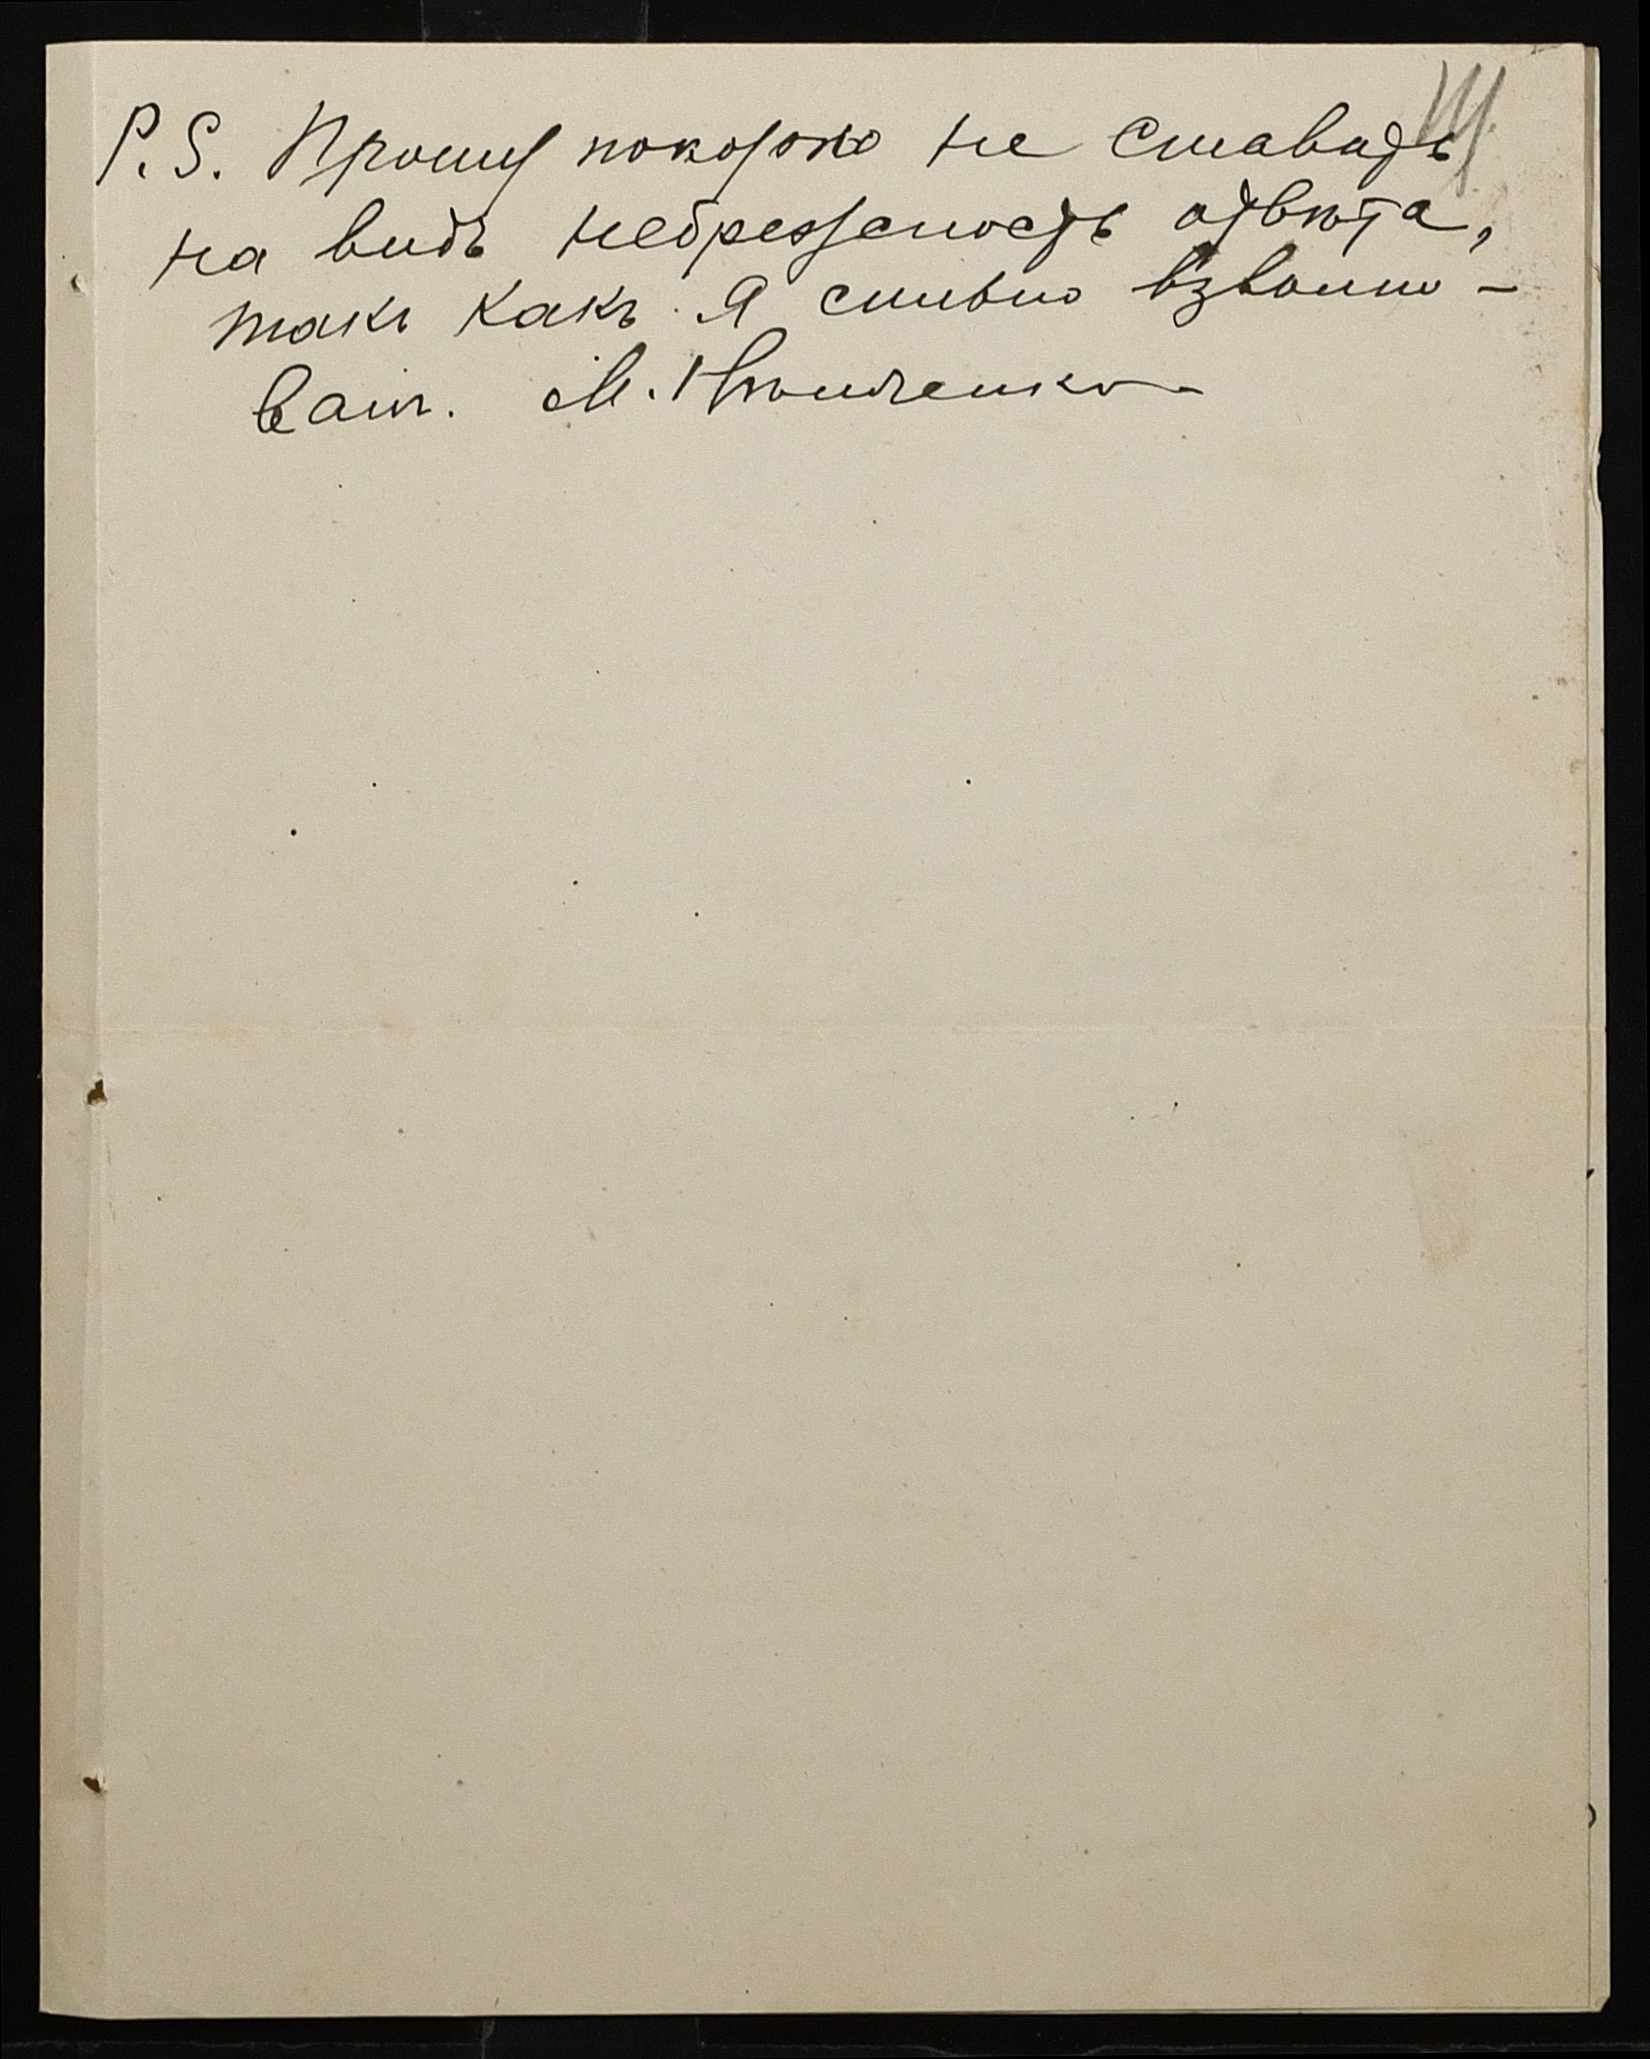 P.S. Прошу покорно не ставить
на видъ небрежность отвѣта,
такъ какъ я сильно взволно-
ванъ. М.